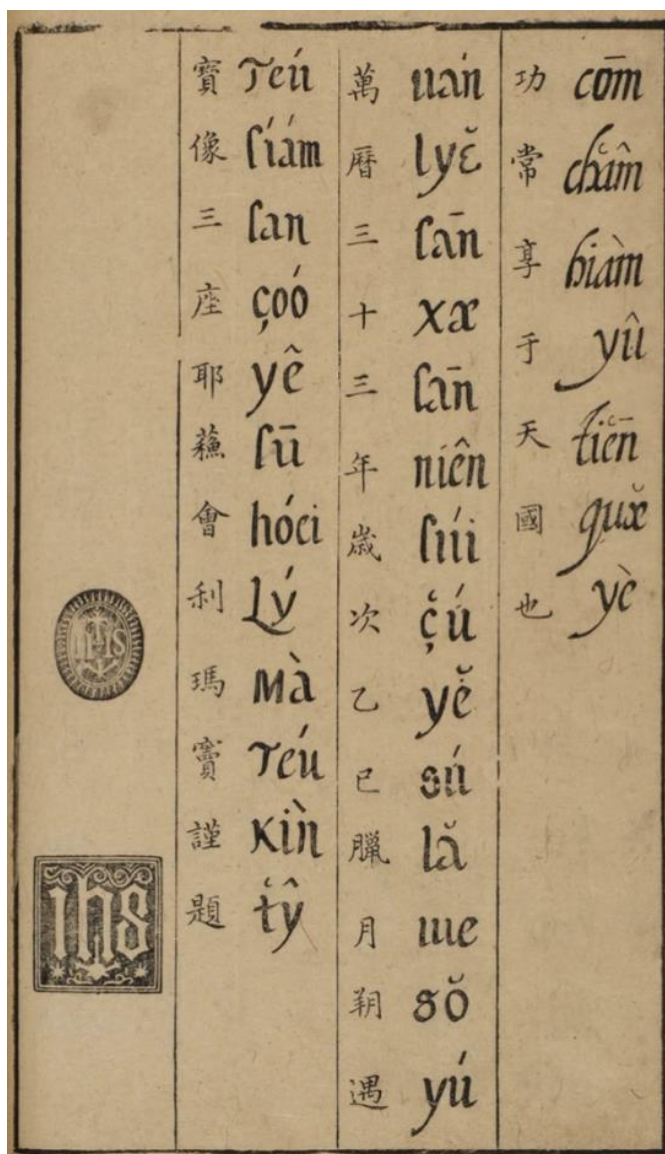 功常享于天國也
cōm chăm̂ hiàm yû tiēn quæ̆ yè
萬曆三十三年歲次乙巳臘月朔遇
uán lyĕ ſān xæ ſān niên ſúi çú yĕ sú lă ɯe sŏ yú
寶像三座耶蘓會利瑪竇謹題
Teú ſiám ſan çoó yê ſū hóei Lý Mà Teú Kiǹ tŷ
IHS
ihs